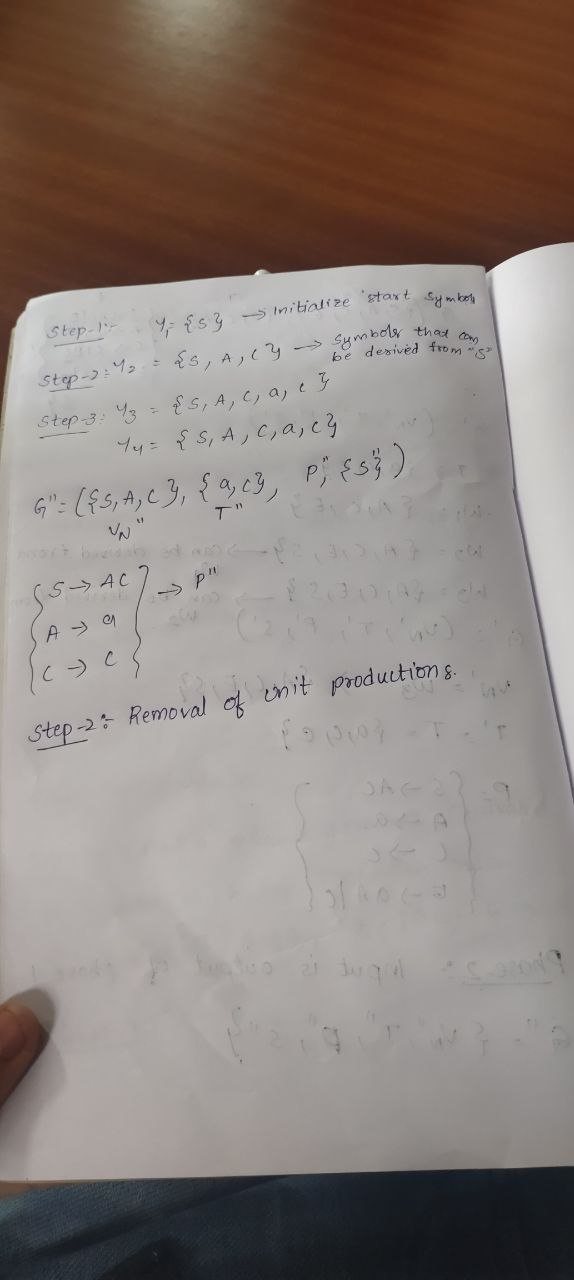 Step-1:- Y₁ = {S} → Initialize start symbol
Step-2: Y₂ = {S, A, C} → Symbols that can
be derived from "S"
Step-3: Y₃ = {S, A, C, a, c}
Y₄ = {S, A, C, a, c}
G" = ({S, A, C}, {a, c}, P", {S"})
V_N" T"
{ S → AC } → P"
A → a
C → c
Step-2:- Removal of unit productions.